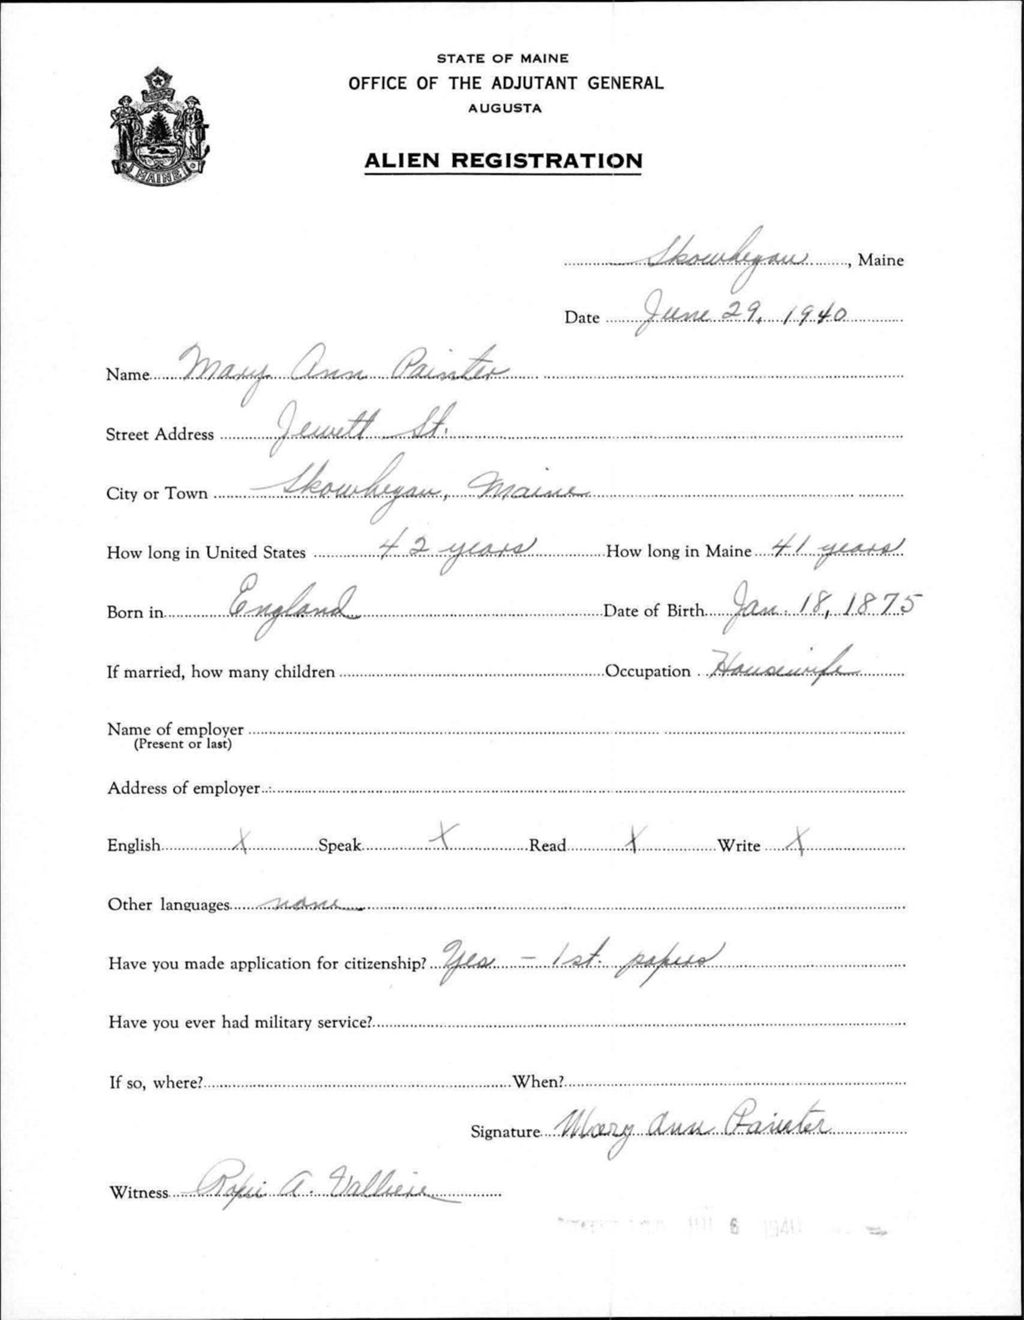 STATE OF MAINE
OFFICE OF THE ADJUTANT GENERAL
AUGUSTA
MAINE
ALIEN REGISTRATION
Skowhegan, Maine
Date June 29, 1940
Name Mary Ann Painter
Street Address Jewett St.
City or Town Skowhegan, Maine
How long in United States 42 years How long in Maine 41 years
Born in England Date of Birth Jan. 18, 1875
If married, how many children Occupation Housewife
Name of employer
(Present or last)
Address of employer
English X Speak X Read X Write X
Other languages none
Have you made application for citizenship? Yes - 1st. papers
Have you ever had military service?
If so, where? When?
Signature Mary Ann Painter
Witness A. Valliere
6 1940